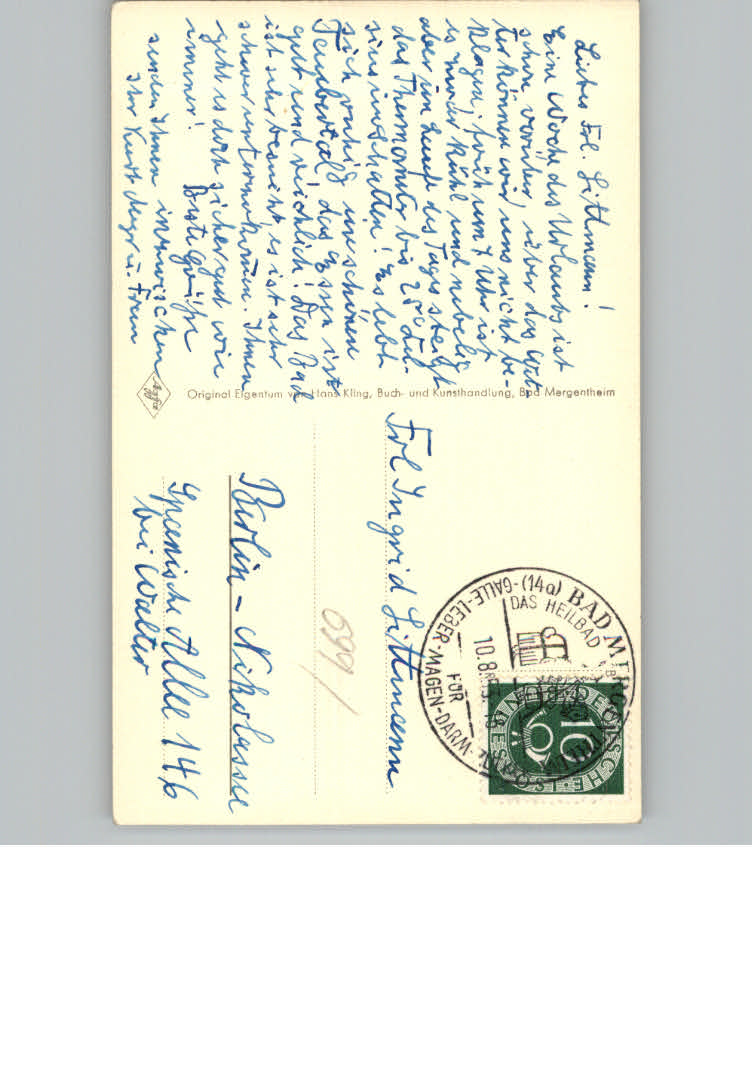 Liebes Frl. Littmann!
Eine Woche des Urlaubs ist
schon vorüber, über das Wet-
ter können wir uns nicht be-
klagen, früh um 7 Uhr ist
es zwar kühl und nebelig
aber im Laufe des Tages steigt
das Thermometer bis 25° Cel-
sius im Schatten! Es lebt
sich ruhig im schönen
Taubertal das Essen ist
gut und reichlich! Das Bad
ist sehr besucht, es ist sehr
schwer unterzukommen. Ihnen
geht es doch sicher gut wie
immer! Beste Grüße
senden Ihnen inzwischen
Ihr Kurt u. Frau
Agfa
Original Eigentum von Hans Kling, Buch- und Kunsthandlung, Bad Mergentheim
Frl Ingrid Littmann
Berlin - Nikolassee
Spanische Allee 146
bei Walter
699/
(14a) BAD MERGENTHEIM
DAS HEILBAD
10.8
FÜR
GALLE-LEBER-MAGEN-DARM-
DEUTSCHE BUNDESPOST
10